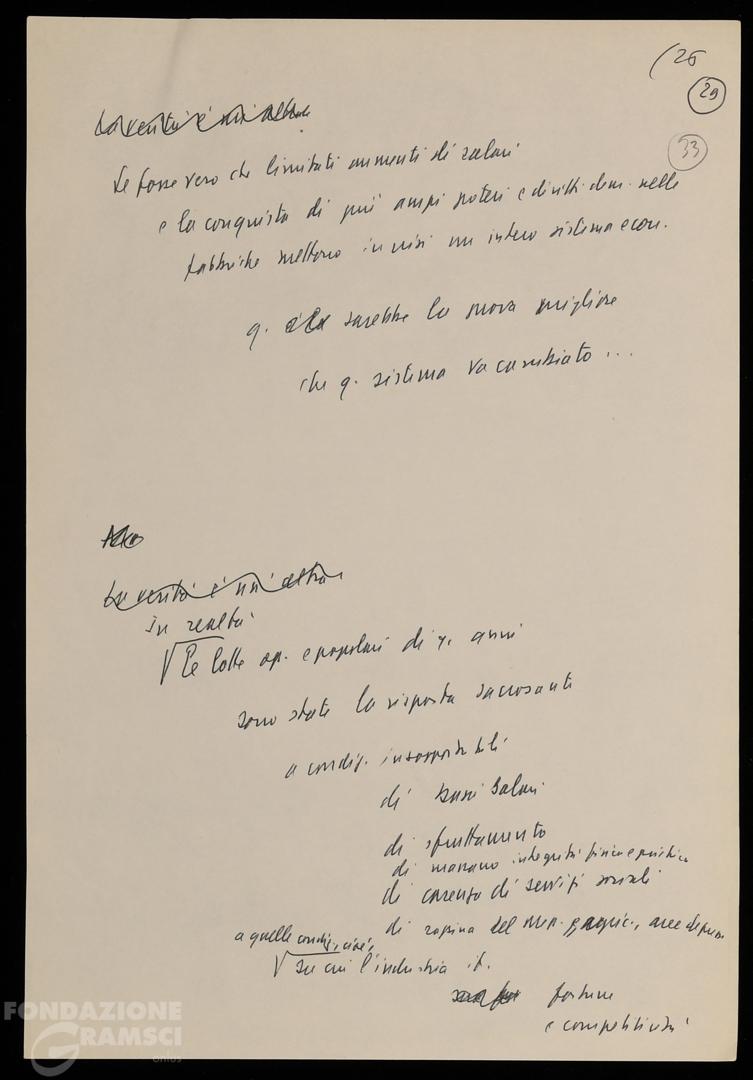 (26
29
33
La verità è un'altra
Se fosse vero che limitati aumenti di salari
e la conquista di più ampi poteri e diritti dem. nelle
fabbriche mettono in crisi un intero sistema econ.
q. sarebbe la prova migliore
che q. sistema va cambiato...
La verità è un'altra
In realtà
Le lotte op. e popolari di q. anni
sono state la risposta sacrosanta
a condiz. insopportabili
di bassi salari
di sfruttamento
di integrità fisica e psichica
di carenza di servizi sociali
di rapina del Mezz., agric., aree depresse
a quelle condiz., cioè,
su cui l'industria it.
fortune
e competitività
FONDAZIONE
GRAMSCI
onlus